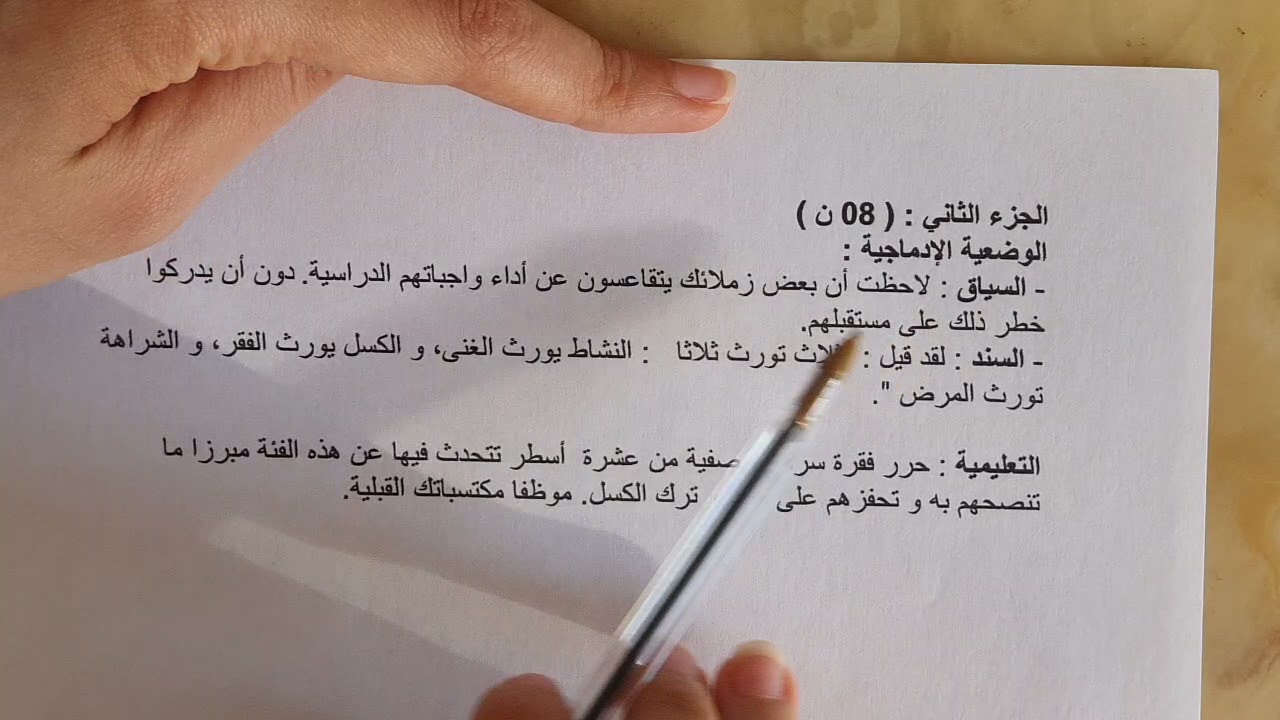 الجزء الثاني : ( 08 ن )
الوضعية الإدماجية :
- السياق : لاحظت أن بعض زملائك يتقاعسون عن أداء واجباتهم الدراسية. دون أن يدركوا
خطر ذلك على مستقبلهم.
- السند : لقد قيل : ثلاث تورث ثلاثا : النشاط يورث الغنى، و الكسل يورث الفقر، و الشراهة
تورث المرض ".
التعليمية : حرر فقرة من عشرة أسطر تتحدث فيها عن هذه الفئة مبرزا ما
تنصحهم به و تحفزهم على ترك الكسل. موظفا مكتسباتك القبلية.